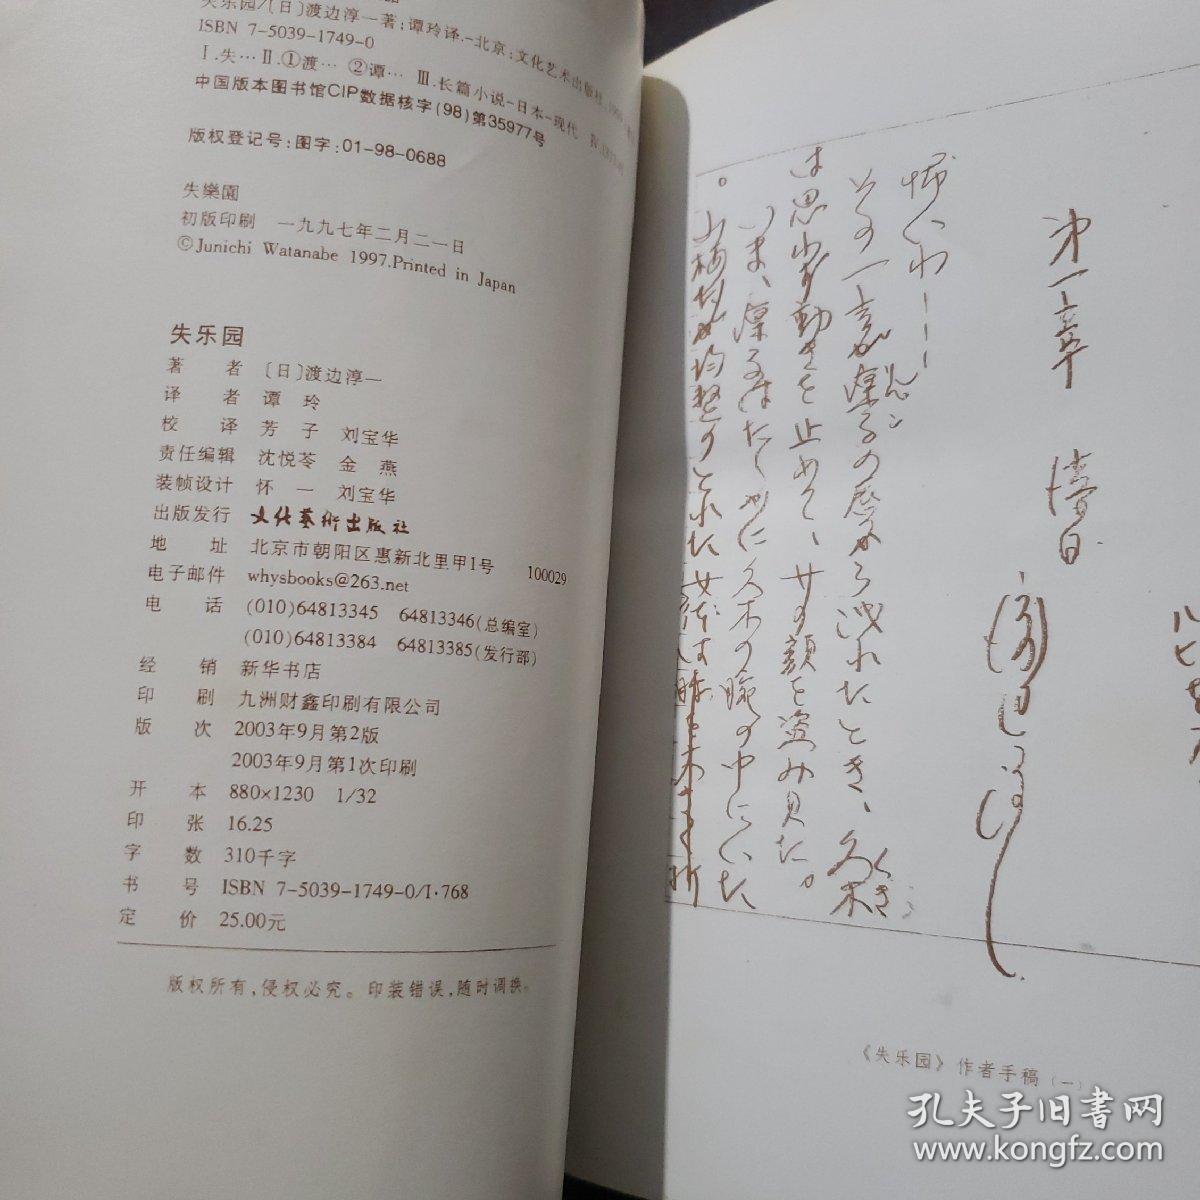 失乐园/〔日〕渡边淳一著;谭玲译.-北京:文化艺术出版社,
ISBN 7-5039-1749-0
Ⅰ.失… Ⅱ.①渡… ②谭… Ⅲ.长篇小说-日本-现代
中国版本图书馆CIP数据核字(98)第35977号
版权登记号:图字:01-98-0688
失樂園
初版印刷 一九九七年二月二一日
©Junichi Watanabe 1997.Printed in Japan
失乐园
著 者 〔日〕渡边淳一
译 者 谭 玲
校 译 芳 子 刘宝华
责任编辑 沈悦苓 金 燕
装帧设计 怀 一 刘宝华
出版发行 文化藝術出版社
地 址 北京市朝阳区惠新北里甲1号 100029
电子邮件 whysbooks@263.net
电 话 (010)64813345 64813346(总编室)
(010)64813384 64813385(发行部)
经 销 新华书店
印 刷 九洲财鑫印刷有限公司
版 次 2003年9月第2版
2003年9月第1次印刷
开 本 880×1230 1/32
印 张 16.25
字 数 310千字
书 号 ISBN 7-5039-1749-0/I·768
定 价 25.00元
版权所有,侵权必究。印装错误,随时调换。
第一章
怖いわ———
その一言が凜子の唇から洩れたとき、久木
りん
くき
は思わず動きを止めて、女の顔を盗み見た。
いま、凜子はたしかに久木の腕の中にいた
。
《失乐园》作者手稿(一)
孔夫子旧书网
www.kongfz.com